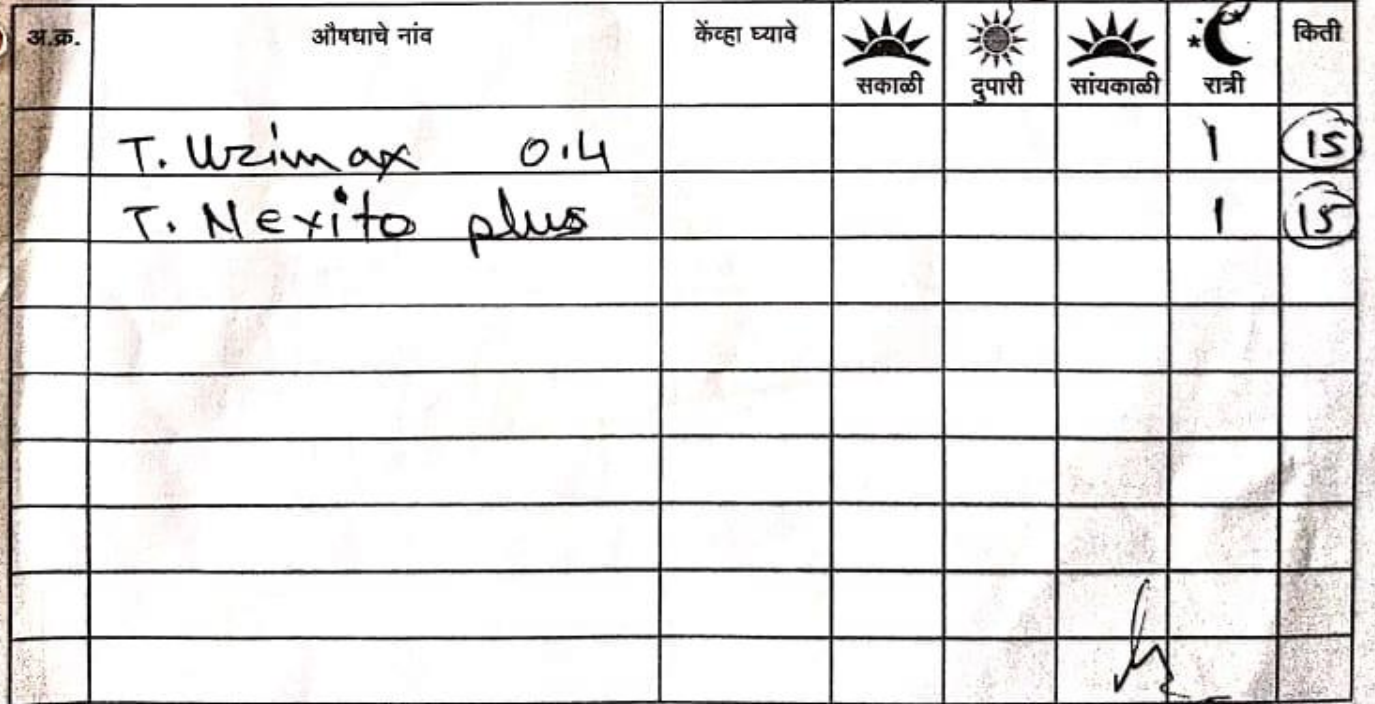 अ.क्र. औषधाचे नांव केंव्हा घ्यावे सकाळी दुपारी सांयकाळी रात्री किती
T. Urimax 0.4 1 15
T. Nexito plus 1 15